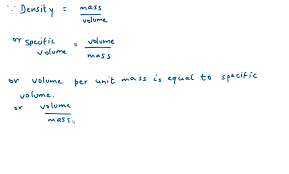 ∵ Density = mass / volume
or specific volume = volume / mass
or volume per unit mass is equal to specific
volume.
or volume / mass